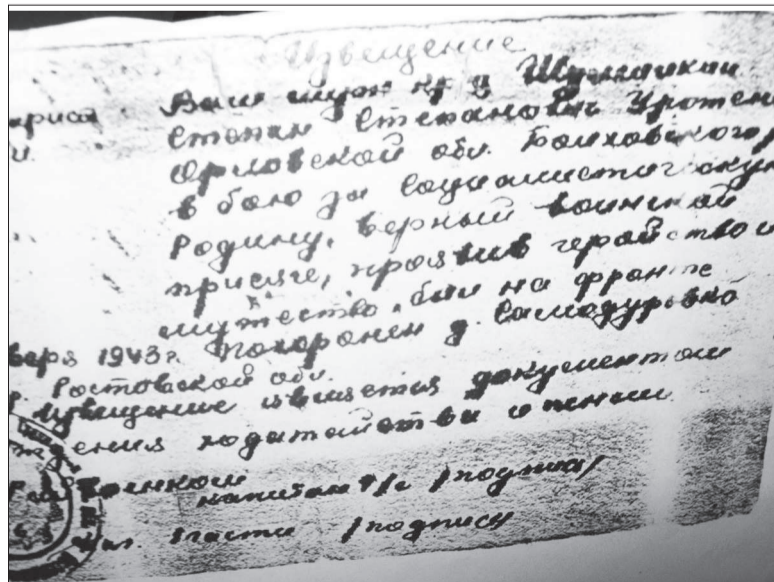 Извещение
Ваш муж кр-ц
Степан Степанович Урожен
Орловской обл. Болховского р
в бою за Социалистическую
Родину, верный воинской
присяге, проявив геройство и
мужество, был на фронте
варя 1943г. похоронен д. Самодуровка
Ростовской обл.
Извещение является документом
жения ходатайства о пенсии
капитан
части /подпись